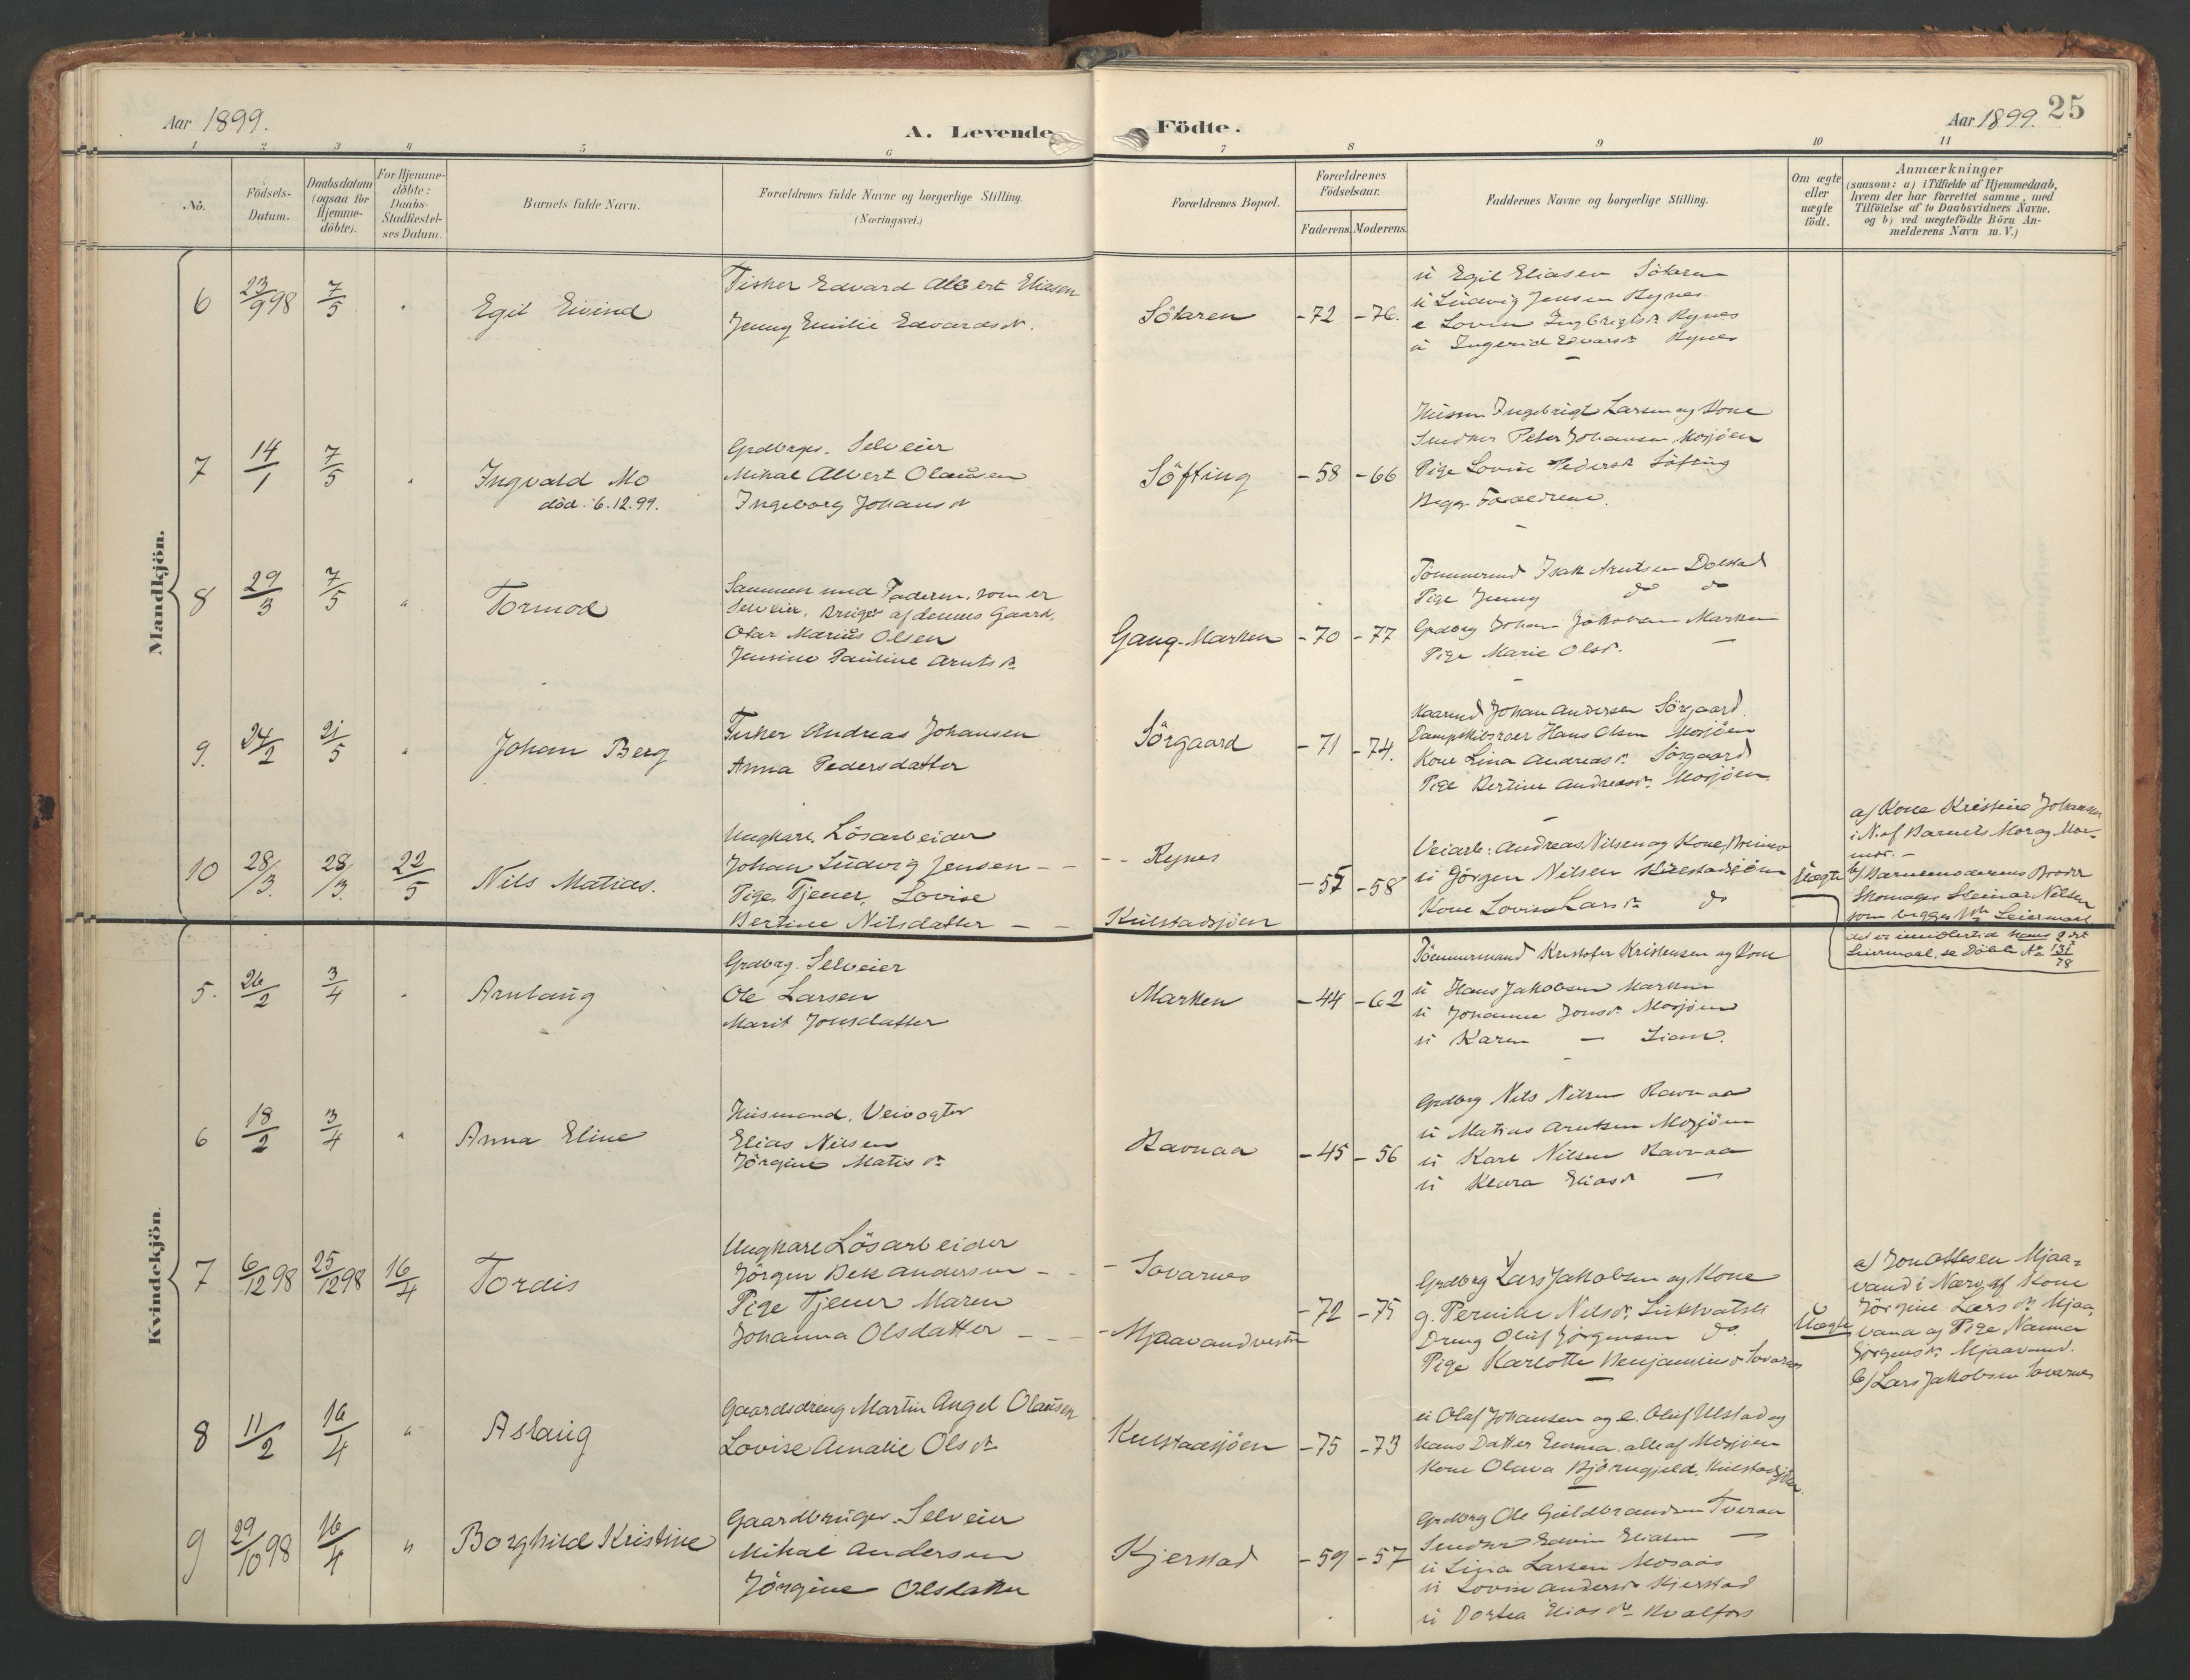 Aar 1899.
A. Levende Födte.
Aar 1899. 25
1 2 3 4 5 6 7 8 9 10 11
No.
Födsels-Datum.
Daabsdatum (ogsaa for Hjemme-döbte).
For Hjemme-döbte: Daabs-Stadfæstel-ses Datum.
Barnets fulde Navn.
Forældrenes fulde Navne og borgerlige Stilling.
(Næringsvei.)
Forældrenes Bopæl.
Forældrenes Födselsaar.
Faderens. Moderens.
Faddernes Navne og borgerlige Stilling.
Om ægte eller uægte födt.
Anmærkninger
(saasom: a) i Tilfælde af Hjemmedaab,
hvem der har forrettet samme, med
Tilföielse af to Daabsvidners Navne,
og b) ved uægtefödte Börn An-
melderens Navn m. V.)
Mandkjön.
6 23/9 98 7/5 "
Egil Eivind
Fisker Edvard Albert Eliasen
Jenny Emilie Edvardsdt.
Søkaren -72 -76.
u Egil Eliasen Søkaren
u Ludvig Jensen Rynes
e Lovise Ingbrigtsdt Rynes
u Ingerid Edvardsdt Rynes
7 14/1 7/5 "
Ingvald Mo
död 6.12.99.
Grdbrger. Selveier
Mikal Albert Olausen
Ingeborg Johansdt
Söfting -58 -66
Husm. Ingebrigt Larsen og Kone
Snedker Peter Johansen, Mosjöen
Pige Lovise Pedersdt Söfting
Begge Forældrene.
8 29/3 7/5 "
Tormod
Sammen med Faderen, som er
Selveier, Bruger af dennes Gaard,
Olar Marius Olsen
Jensine Pauline Arntsdt.
Gang-Marken -70 -77
Tömmermd Isak Arntsen Dolstad
Pige Jenny do do
Grdbrg Johan Jakobsen Marken
Pige Marie Olsdt. —
9. 24/2 21/5 "
Johan Berg
Fisker Andreas Johansen
Anna Pedersdatter
Sörgaard -71 -74.
Kaarmd Johan Andersen Sörgaard.
Hans Olsen Mosjöen
Kone Lina Andreasdt. Sörgaard
Pige Bertine Andreasdt. Mosjöen.
10 28/3. 28/3. 22/5
Nils Matias.
Ungkarl, Lösarbeider
Johan Ludvig Jensen - -
Pige, Tjener, Lovise
Bertine Nilsdatter - -
- - Rynes
Kulstadsjöen
-57 -58
Veiarb: Andreas Nilsen og Kone,
u Jörgen Nilsen Kulstadsjöen
Kone Lovise Larsdt do
Uægte
a) Kone Kristine Johansen
i N. af Barnets Mor og Mor-
mor. -
b) Barnemoderens Broder
Skomager Steinar Nilsen
som begges 1ste Leiermaal
det er imidlertid hans 2det
Leiermaal, se Döbte No 131/78
Kvindekjön.
5. 26/2 3/4 "
Arnlaug
Grdbrg. Selveier
Ole Larsen
Marit Jonsdatter
Marken -44 -62
Tömmermand Kristofer Kristensen og Kone
u Hans Jakobsen Marken
u Johanne Jonsdt. Mosjöen
u Karen — Liane.
6 18/2 3/4 "
Anna Eline
Husmand. Veivogter
Elias Nilsen
Jörgine Matisdt.
Ravnaa -45 -56
Grdbrg Nils Nilsen Ravnaa
u Matias Arntsen Mosjöen
u Karl Nilsen Ravnaa
u Klara Eliasdt —
7 6/12 98 25/12 98 16/4
Tordis
Ungkarl Lösarbeider
Jörgen Beck Andersen - -
Pige Tjener Maren
Johanna Olsdatter - - -
- Sovarnes
- Mjaavand vestre
-72 -75
Grdbrg Lars Jakobsen og Kone
g. Pernille Nilsdt.
Dreng Oluf Jörgensen do
Pige Karlotte Benjaminsdt Sovarnes
Uægte
a) Jon Ottesen Mjaa-
vand i Nærv. af Kone
Jörgine Larsdt. Mjaa-
vand og Pige Nanna
Jörgensdt. Mjaavand.
b) Lars Jakobsen Sovarnes
8 11/2 16/4 "
Aslaug
Gaardsdreng Martin Angel Olausen
Lovise Amalie Olsdt.
Kulstadsjöen -75 -73
u Olaf Johansen og e. Oluf Ulstad og
hans Datter Emma. alle af Mosjöen
Kone Olava Björnugjeld, Kulstadsjöen.
9 29/10 98 16/4 "
Borghild Kristine
Gaardbruger. Selveier
Mikal Andersen
Jörgine Olsdatter
Kjerstad -59 -57
Grdbrg Ole Guldbrandsen Tveraa
Snedker Edvin Eliasen —
u Lina Larsen Mosaas
u Lovise Andersdt Kjerstad
u Dortea Eliasdt. Kvalfors